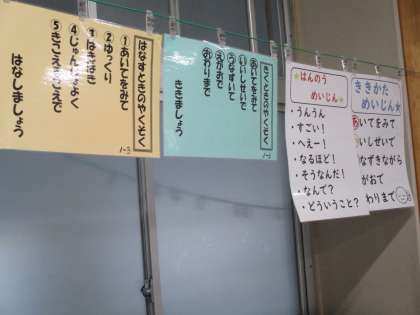 はなすときのやくそく
①あいてをみて
②ゆっくり
③はきはき
④じゅんじょよく
⑤きこえるこえで
はなしましょう
1-3
きくときのやくそく
あいてをみて
いいしせいで
うなずいて
えがおで
おわりまで
ききましょう
1-3
★はんのう
めいじん★
・うんうん
・すごい!
・へえー!
・なるほど!
・そうなんだ!
・なんで?
・どういうこと?
ききかた
めいじん★
あいてをみて
いしせいで
なずきながら
がおで
わりまで